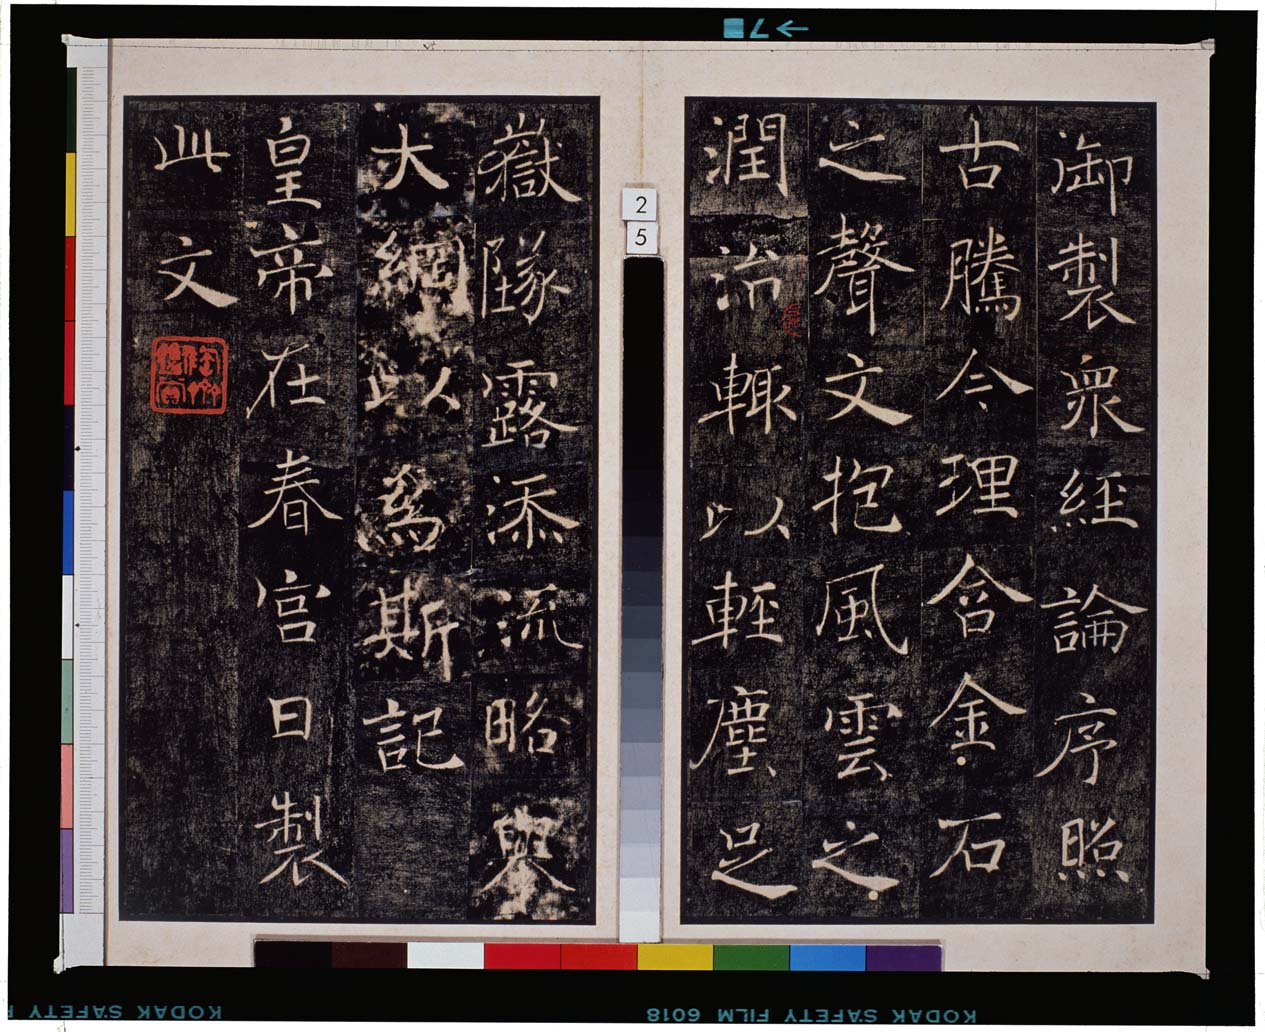 御製眾經論序照
古騰今理含金石
之聲文抱風雲之
潤治輙以輕塵足
嶽墜露添流略舉
大綱以爲斯記
皇帝在春宮日製
此文
2
5
7
KODAK SAFETY FILM 6018
KODAK SAFETY
KODAK SAFETY F